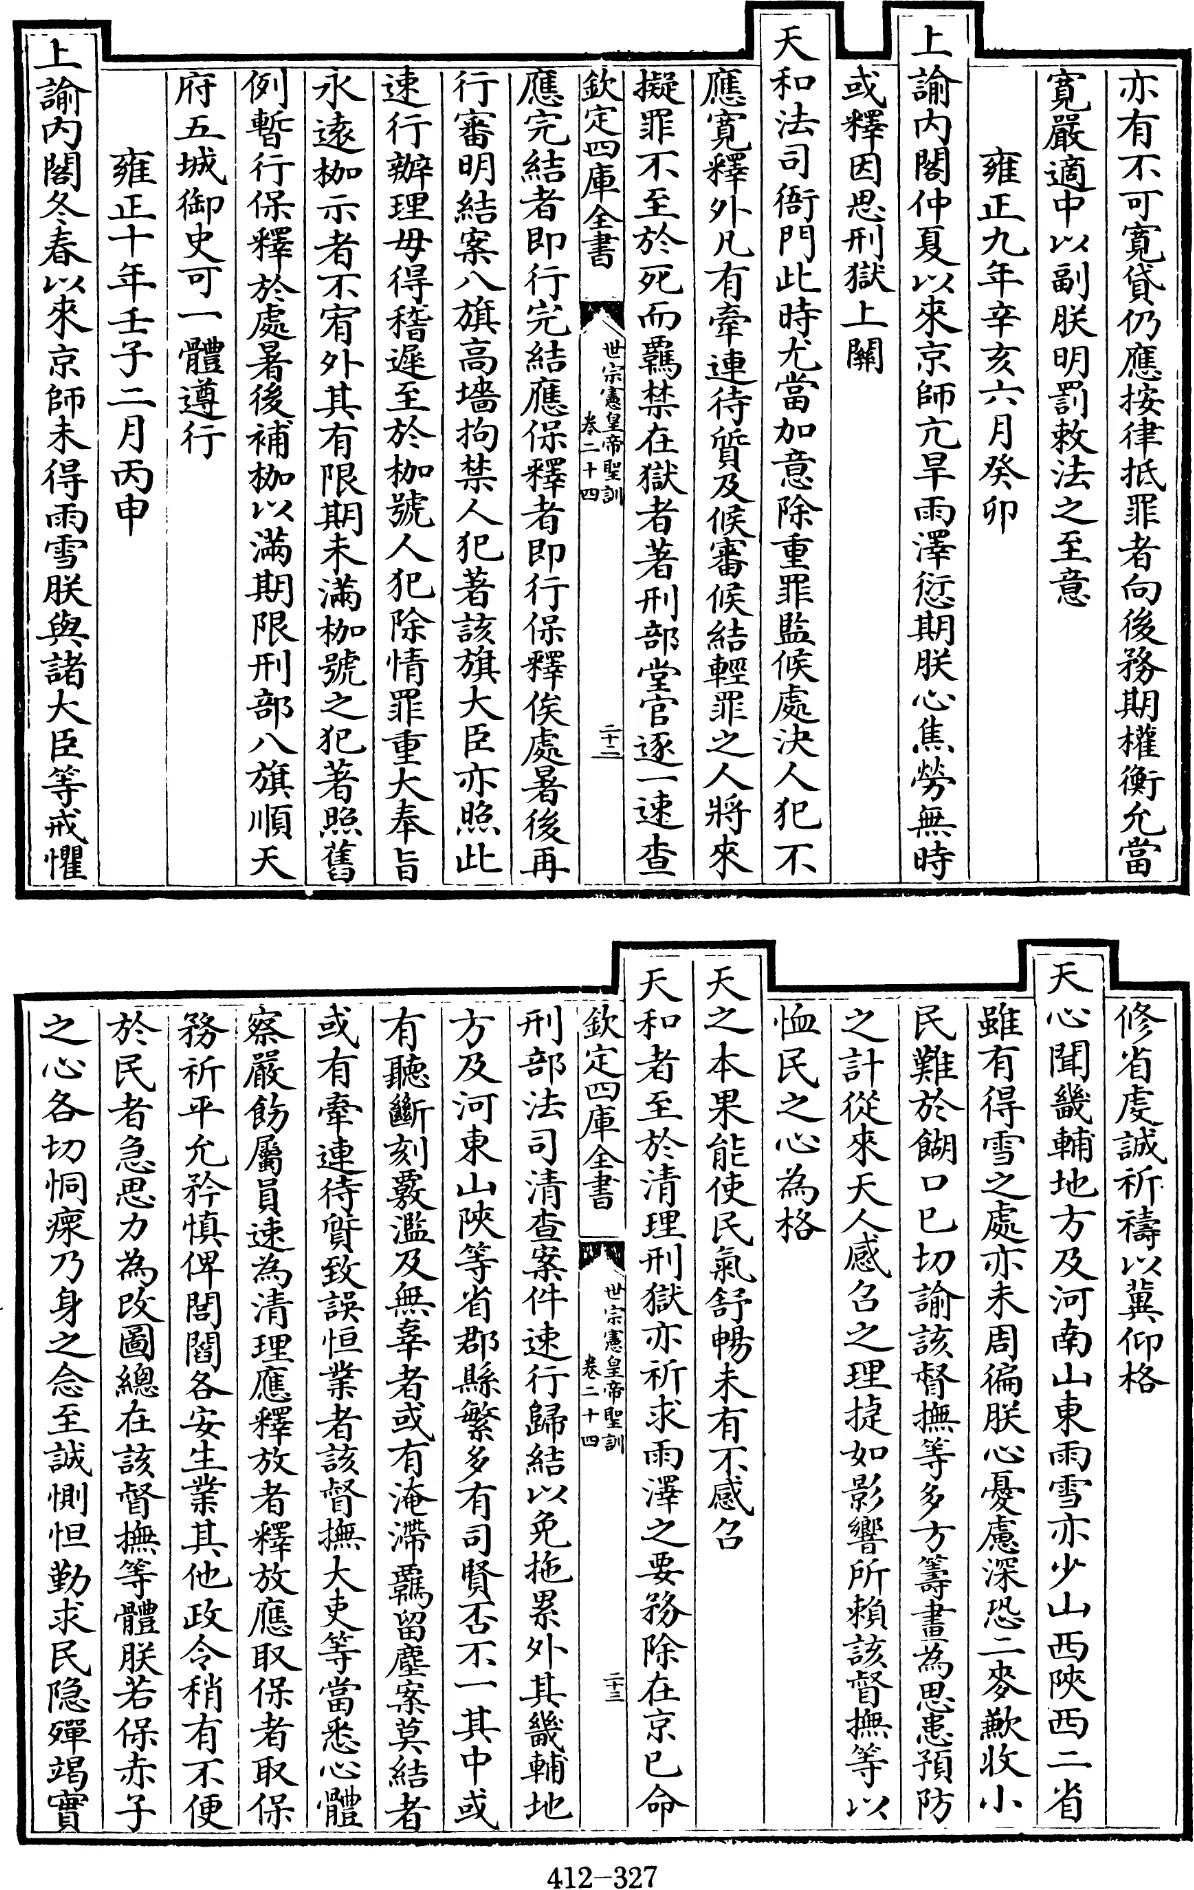 亦有不可寬貸仍應按律抵罪者向後務期權衡允當
寛嚴適中以副朕明罰敕法之至意
雍正九年辛亥六月癸卯
上諭内閣仲夏以來京師亢旱雨澤愆期朕心焦勞無時
或釋因思刑獄上關
天和法司衙門此時尤當加意除重罪監候處決人犯不
應寛釋外凡有牽連待質及候審候結輕罪之人將來
擬罪不至於死而羈禁在獄者著刑部堂官逐一速查
欽定四庫全書
世宗憲皇帝聖訓
卷二十四
二十二
應完結者即行完結應保釋者即行保釋俟處暑後再
行審明結案八旗高墻拘禁人犯著該旗大臣亦照此
速行辦理毋得稽遲至於枷號人犯除情罪重大奉旨
永遠枷示者不宥外其有限期未滿枷號之犯著照舊
例暫行保釋於處暑後補枷以滿期限刑部八旗順天
府五城御史可一體遵行
雍正十年壬子二月丙申
上諭内閣冬春以來京師未得雨雪朕與諸大臣等戒懼
修省虔誠祈禱以冀仰格
天心聞畿輔地方及河南山東雨雪亦少山西陜西二省
雖有得雪之處亦未周徧朕心憂慮深恐二麥歉收小
民難於餬口已切諭該督撫等多方籌畫為思患預防
之計從來天人感召之理捷如影響所賴該督撫等以
恤民之心為格
天之本果能使民氣舒暢未有不感召
天和者至於清理刑獄亦祈求雨澤之要務除在京已命
欽定四庫全書
世宗憲皇帝聖訓
卷二十四
二十三
刑部法司清查案件速行歸結以免拖累外其畿輔地
方及河東山陜等省郡縣繁多有司賢否不一其中或
有聽斷刻覈濫及無辜者或有淹滯羈留塵案莫結者
或有牽連待質致誤恒業者該督撫大吏等當悉心體
察嚴飭屬員速為清理應釋放者釋放應取保者取保
務祈平允矜慎俾閭閻各安生業其他政令稍有不便
於民者急思力為改圖總在該督撫等體朕若保赤子
之心各切恫瘝乃身之念至誠惻怛勤求民隱殫竭實
412-327